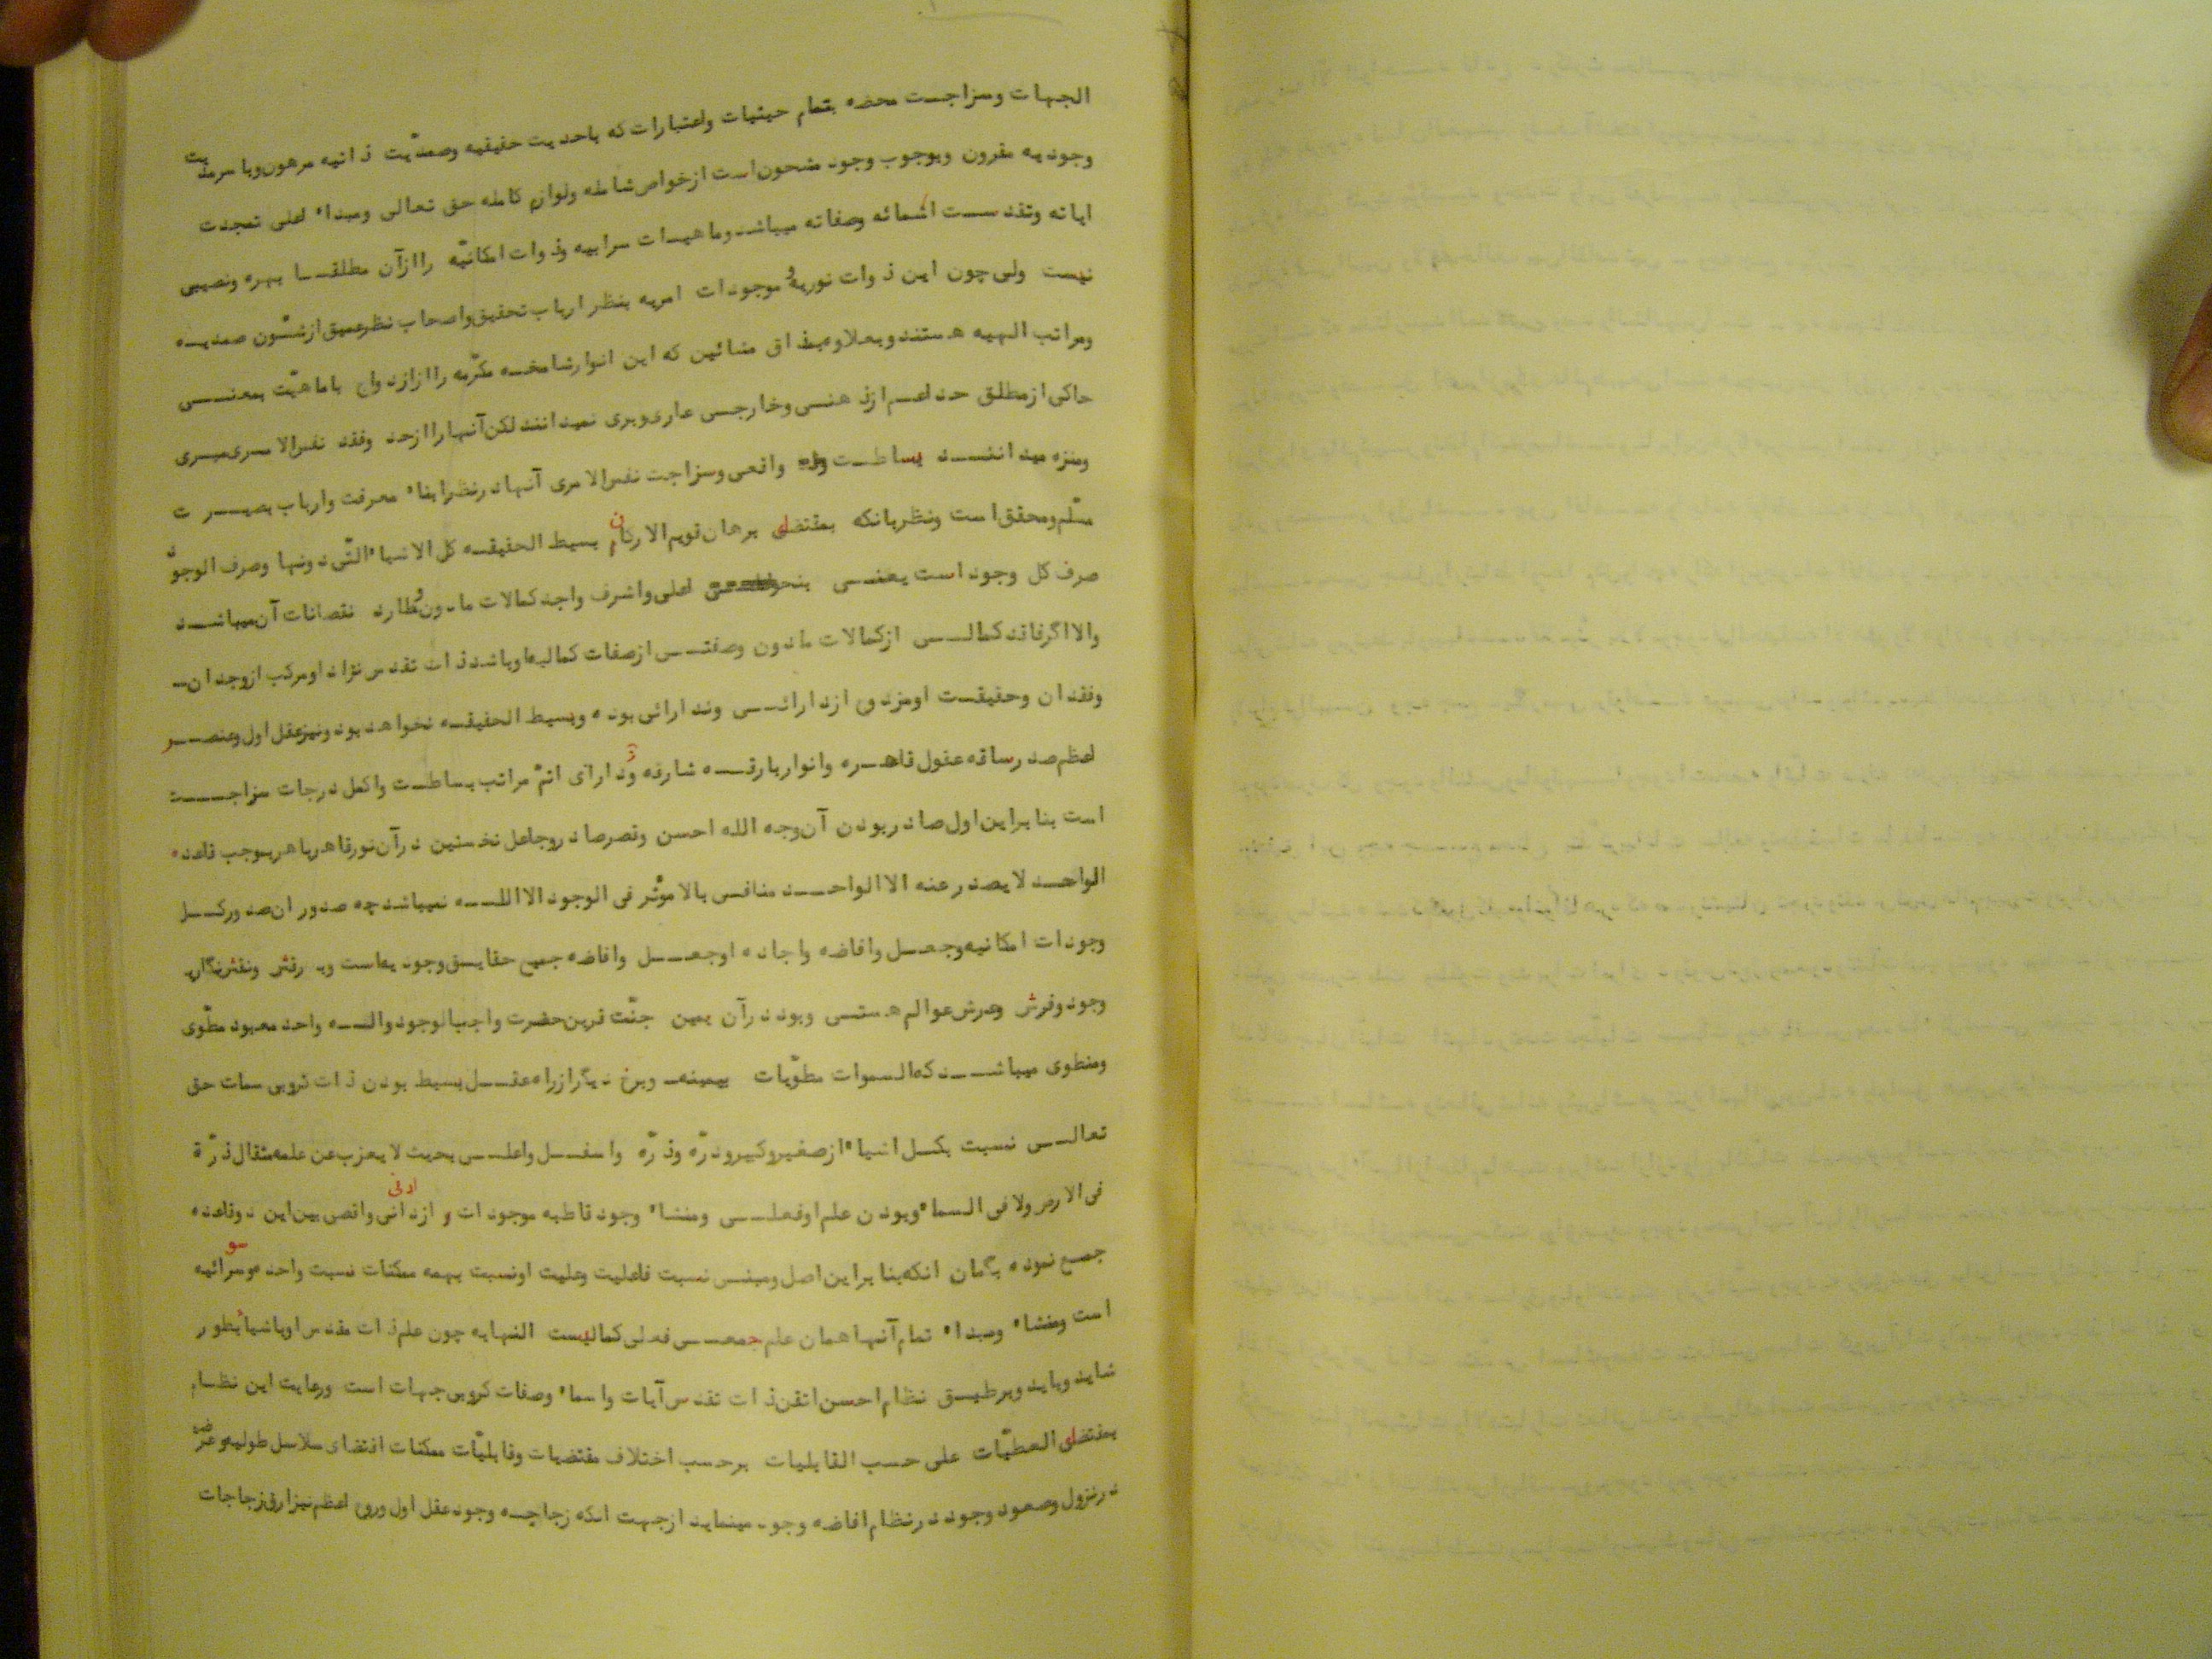 الجهات وسزاجت محضه بتمام حیثیات واعتبارات که باحدیت حقیقیه وصمدّیت ذاتیه مرهون وبا سرمدیت
وجودیه مقرون وبوجوب وجود مشحون است ازخواص شامله ولوازم کامله حق تعالی ومبداء اعلی تمجدت
ایاته وتقدست اسمائه وصفاته میباشد وماهیات سرابیه وذوات امکانیّه راازآن مطلقا بهره ونصیبی
نیست ولی چون این ذوات نوریه و موجودات امریه بنظر ارباب تحقیق واصحاب نظرعمیق ازشئون صمدیه
ومراتب الهیه هستند وبعلاوه بمذاق مشائین که این انوارشامخه مکرّمه راازازدواج باماهیّت بمعنی
حاکی ازمطلق حد اعم ازذهنی وخارجی عاری وبری نمیدانند لکن آنهاراازحد وفقد نفس الامری مبری
ومنزه میدانند بساطت واقعی وسزاجت نفس الامری آنها درنظرابناء معرفت وارباب بصیرت
مسلّم ومحقق است ونظربانکه بمقتضای برهان قویم الارکان بسیط الحقیقه کل الاشیاء التّی دونها وصرف الوجود
صرف کل وجود است یعنی بنحو اعلی واشرف واجد کمالات مادون وطارد نقصانات آن میباشد
والا اگرفاقد کمالی ازکمالات مادون وصفتی ازصفات کمالیه اوباشد ذات تقدس نژاد اومرکب ازوجدان
وفقدان وحقیقت اومزدوج ازدارائی وندارائی بوده وبسیط الحقیقه نخواهد بود ونیزعقل اول وعنصر
اعظم صدرساقه عقول قاهره وانواربارقه شارقه ودارای اتمّ مراتب بساطت واکمل درجات سزاجت
است بنابراین اول صادربودن آن وجه الله احسن وقصرصادروجاعل نخستین درآن نورقاهرباهربموجب قاعده
الواحد لایصدرعنه الاالواحد منافی بالاموثّر فی الوجود الاالله نمیباشد چه صدور ان صدورکل
وجودات امکانیه وجعل وافاضه واجاده اوجعل وافاضه جمیع حقایق وجودیه است و رقش ونقش نگار
وجود وفرش وعرش عوالم هستی وبود درآن یمین جنّت قرین حضرت واجب الوجود والله واحد معبود مطّوی
ومنطوی میباشد که السموات مطوّیات بیمینه وبرخ دیگرازراه عقل بسیط بودن ذات کروبی سمات حق
تعالی نسبت بکل اشیاء ازصغیروکبیرودرّه وذرّه واسفل واعلی بحیث لایعزب عن علمه مثقال ذرّة
فی الارض ولافی السماء وبودن علم اوفعلی ومنشاء وجود قاطبه موجودات و ازدانی واقصی بین این دوقاعده
جمع نموده بگمان انکه بنابراین اصل ومبنی نسبت فاعلیت وعلیت اونسبت بهمه ممکنات نسبت واحده وسوائیه
است ومنشاء ومبداء تمام آنها همان علم جمعی فعلی کمالیست النهایه چون علم ذات مقدس اوباشیابطور
شاید وباید وبرطبق نظام احسن اتقن ذات تقدس آیات واسماء وصفات کروبی جهات است ورعایت این نظام
بمقتضای العطیّات علی حسب القابلیات برحسب اختلاف مقتضیات وقابلیّات ممکنات اقتضای سلاسل طولیه وعرضیه
درنزول وصعود وجود درنظام افاضه وجود مینماید ازجهت انکه زجاجه وجود عقل اول وروح اعظم نیزارق زجاجات